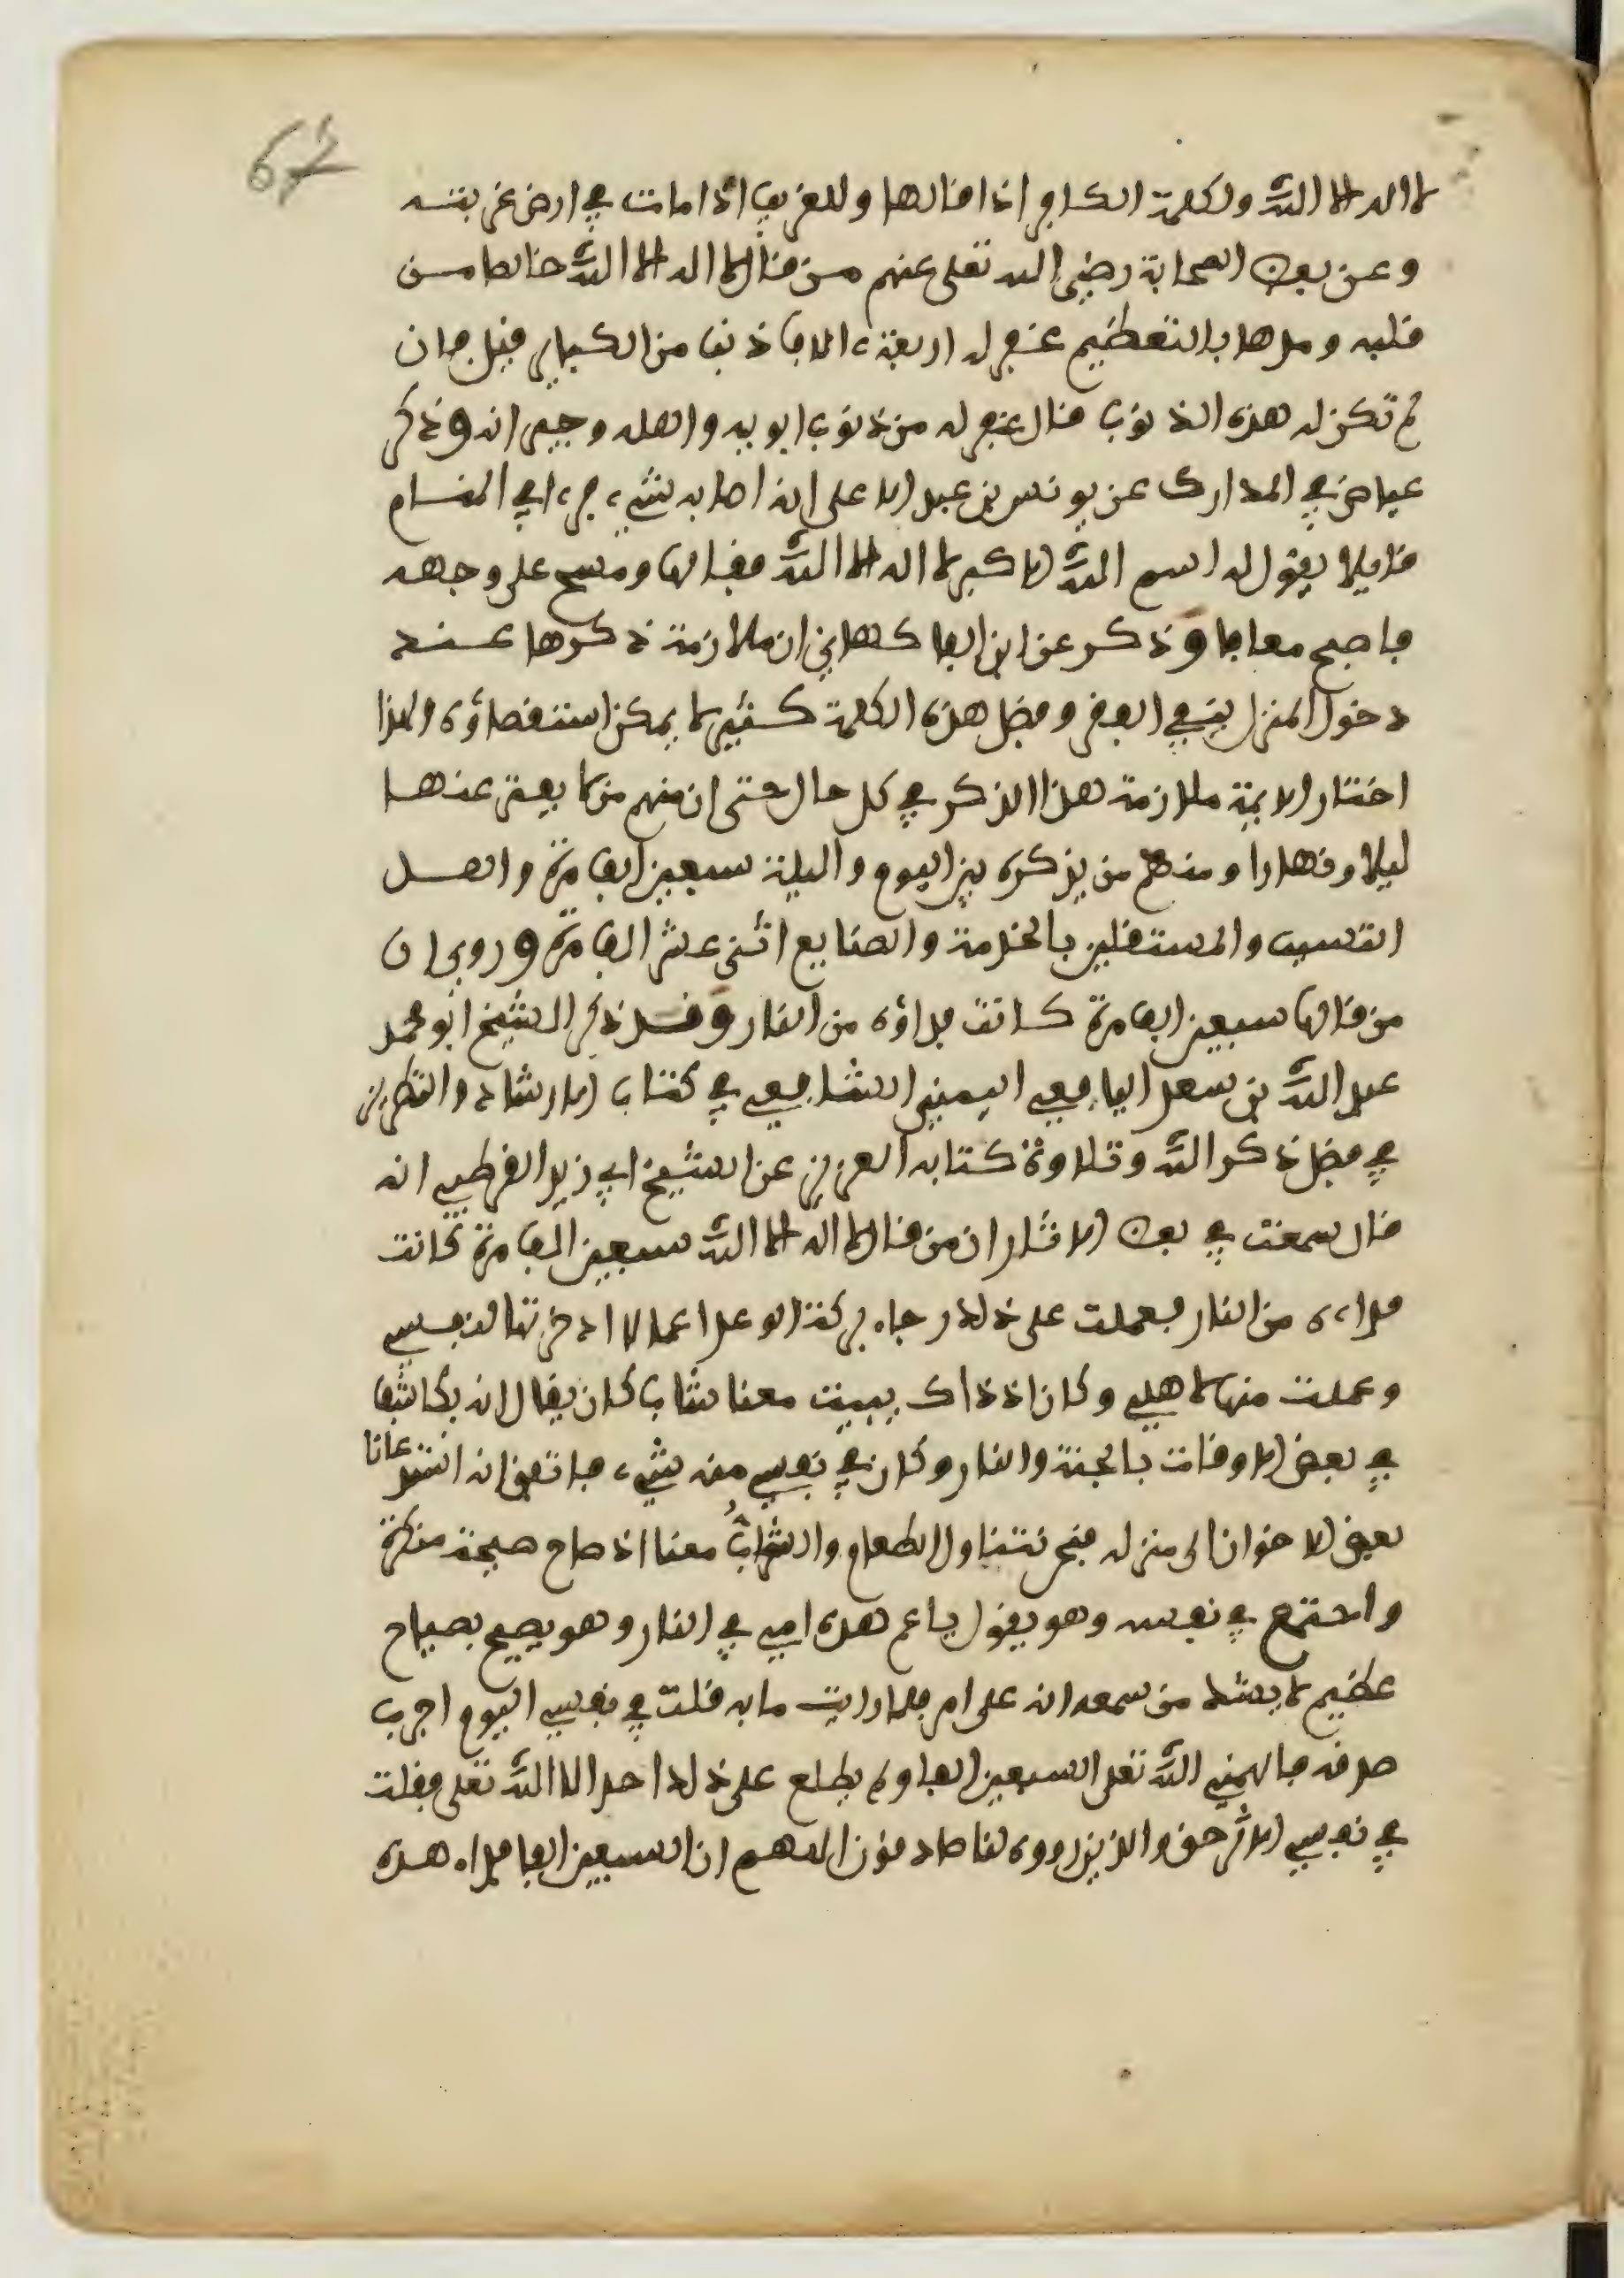 67
لا اله الا الله ولكلمة الكافر اذا قالها وللغريب اذا مات في ارض غربته
وعن بعض الصحابة رضي الله تعلى عنهم من قال لا اله الا الله خالصا من
قلبه ومدها بالتعظيم غفر له اربعة ءالاف ذنب من الكباير قيل فان
لم تكن له هذه الذنوب قال غفر له من ذنوب ابويه واهله وجيرانه وذكر
عياض في المدارك عن يونس بن عبد الاعلى انه اصابه شيء فرءا في المنام
قايلا يقول له اسم الله الاكبر لا اله الا الله فقالها ومسح على وجهه
فاصبح معافا وذكر عن ابن الفاكهاني ان ملازمة ذكرها عند
دخول المنزل ينفي الفقر وفضل هذه الكلمة كثير لا يمكن استقصاؤه ولهذا
اختار الايمة ملازمة هذا الذكر في كل حال حتى ان منهم من لا يفتر عنها
ليلا ونهارا ومنهم من يذكره بين اليوم والليلة سبعين الف مرة واهل
التسبب والمستغلين بالخدمة والصنايع اثنى عشر الف مرة وروي ان
من قالها سبعين الف مرة كانت فداؤه من النار وقد ذكر الشيخ ابو محمد
عبد الله بن سعد اليافعي اليمني الشافعي في كتاب الارشاد والتطريز
في فضل ذكر الله وتلاوة كتابه العزيز عن الشيخ ابي زيد القرطبي انه
قال سمعت في بعض الاثار ان من قال لا اله الا الله سبعين الف مرة كانت
فداءه من النار فعملت على ذلك رجاء بركة الوعد اعمالا ادخرتها لنفسي
وعملت منها لاهلي وكان اذ ذاك يبيت معنا شاب كان يقال انه يكاشف
في بعض الاوقات بالجنة والنار وكان في نفسي منه شيء فاتفق انه استدعانا
بعض الاخوان الى منزله فنحن نتناول الطعام والشراب معنا اذ صاح صيحة منكرة
واجتمع في نفسه وهو يقول يا عم هذه امي في النار وهو يصيح بصياح
عظيم لا يشك من سمعه انه على امر فلما رايت ما به قلت في نفسي اليوم اجرب
صدقه فالهمني الله تعلى السبعين الفا ولم يطلع على ذلك احد الا الله تعلى فقلت
في نفسي الاثر حق والذين رووه لنا صادقون اللهم ان السبعين الفا فداء هذه